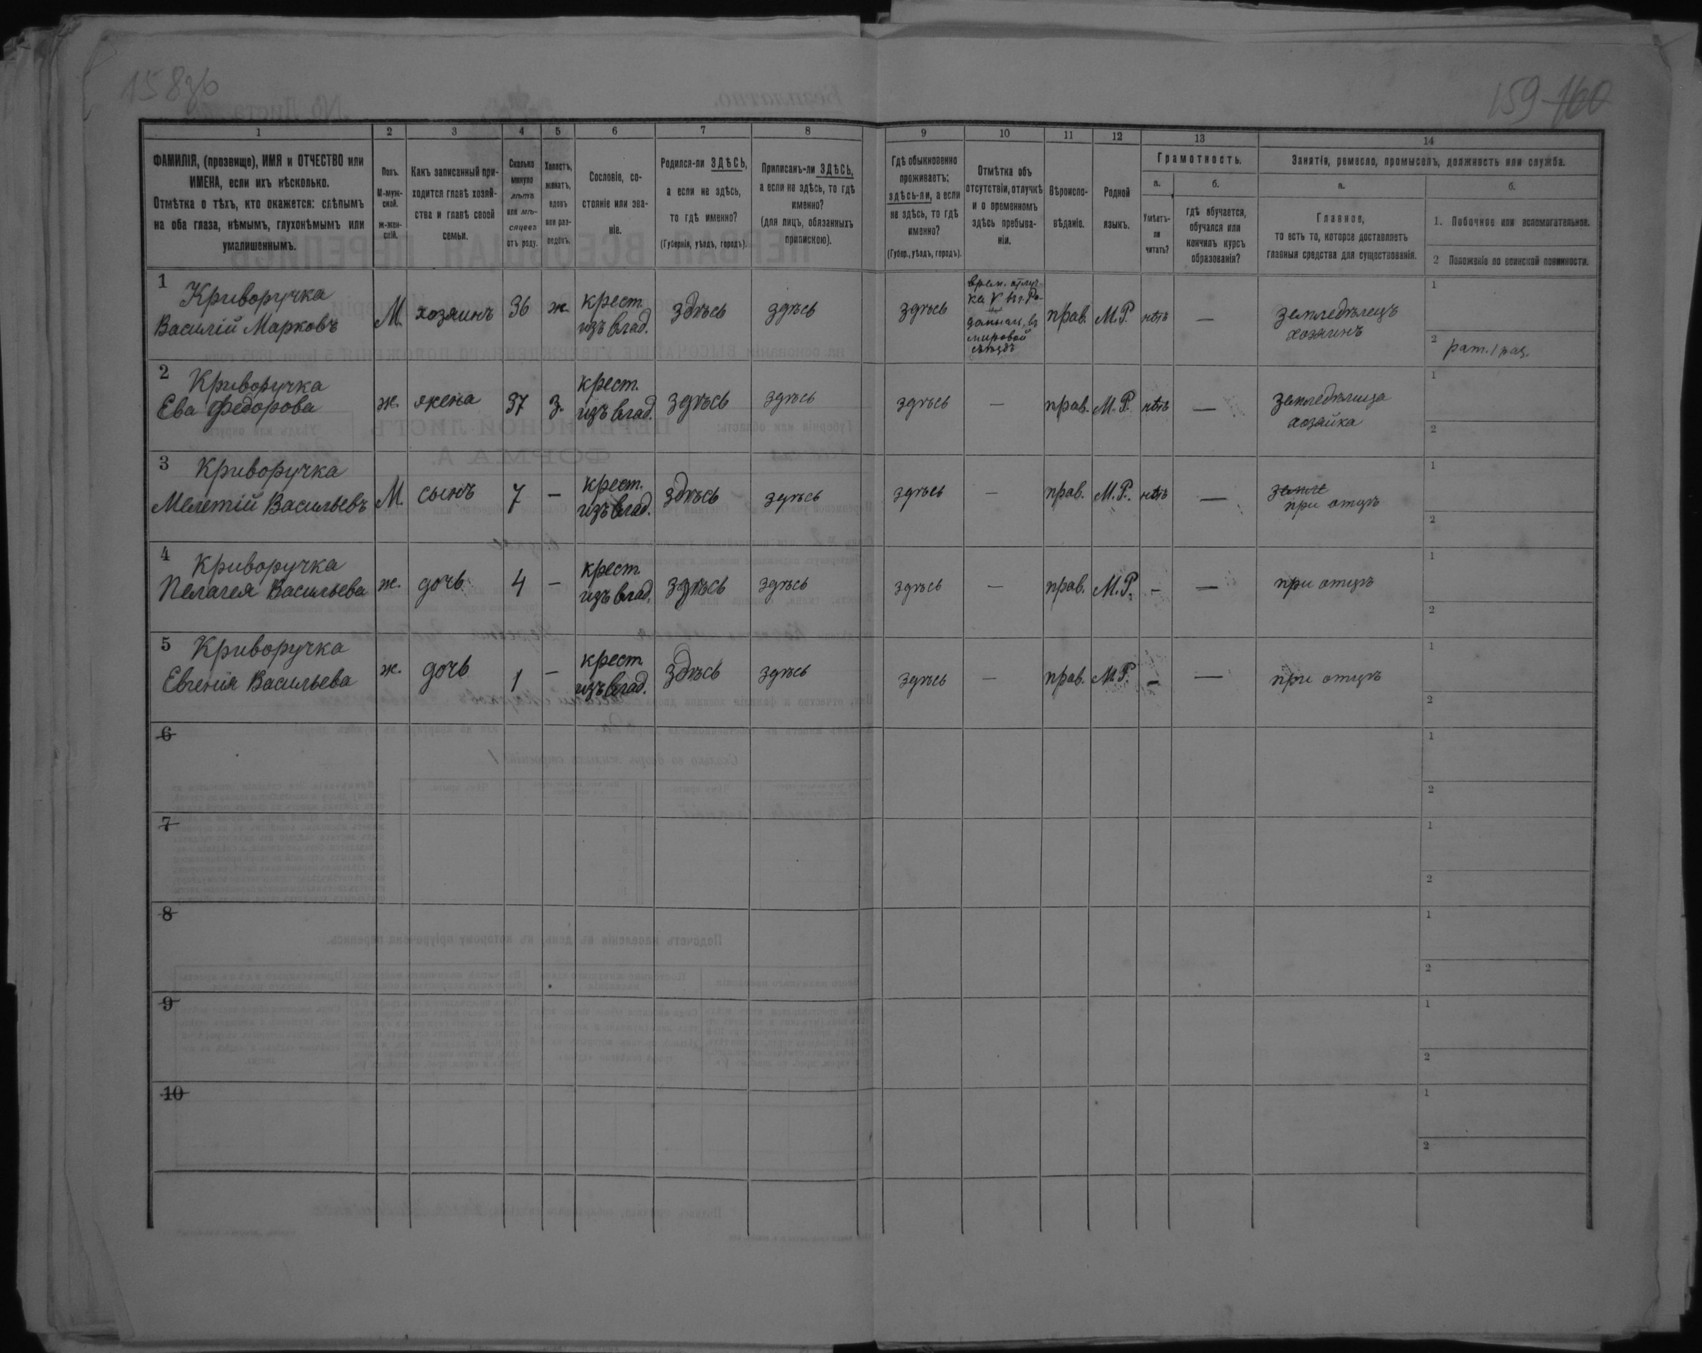 158 об
159 160
1
2
3
4
5
6
7
8
9
10
11
12
13
14
ФАМИЛІЯ, (прозвище), ИМЯ и ОТЧЕСТВО или
ИМЕНА, если ихъ нѣсколько.
Отмѣтка о тѣхъ, кто окажется: слѣпымъ
на оба глаза, нѣмымъ, глухонѣмымъ или
умалишеннымъ.
Полъ.
М-муж-
ской.
ж-жен-
скій.
Какъ записанный при-
ходится главѣ хозяй-
ства и главѣ своей
семьи.
Сколько
минуло
лѣтъ
или мѣ-
сяцевъ
отъ роду.
Холостъ,
женатъ,
вдовъ
или раз-
веденъ.
Сословіе, со-
стояніе или зва-
ніе.
Родился-ли ЗДѢСЬ,
а если не здѣсь,
то гдѣ именно?
(Губернія, уѣздъ, городъ).
Приписанъ-ли ЗДѢСЬ,
а если не здѣсь, то гдѣ
именно?
(для лицъ, обязанныхъ
припискою).
Гдѣ обыкновенно
проживаетъ:
здѣсь-ли, а если
не здѣсь, то гдѣ
именно?
(Губер., уѣздъ, городъ).
Отмѣтка объ
отсутствіи, отлучкѣ
и о временномъ
здѣсь пребыва-
ніи.
Вѣроиспо-
вѣданіе.
Родной
языкъ.
Грамотность.
а.
Умѣетъ-
ли
читать?
б.
гдѣ обучается,
обучался или
кончилъ курсъ
образованія?
Занятія, ремесло, промыселъ, должность или служба.
а.
Главное,
то есть то, которое доставляетъ
главныя средства для существованія.
б.
1. Побочное или вспомогательное.
2 Положеніе по воинской повинности.
1
Криворучка
Василій Марковъ
М.
хозяинъ
36
ж.
крест.
изъ влад.
здѣсь
здѣсь
здѣсь
врем. отлуч-
ка V
мировой
съѣздъ
прав.
М.Р.
нѣтъ
—
земледѣлецъ
хозяинъ
1
2 рат. 1 раз.
2
Криворучка
Ева Федорова
ж.
жена
37
з.
крест.
изъ влад.
здѣсь
здѣсь
здѣсь
—
прав.
М.Р.
нѣтъ
—
земледѣлица
хозяйка
1
2
3
Криворучка
Мелетій Васильевъ
М.
сынъ
7
—
крест.
изъ влад.
здѣсь
здѣсь
здѣсь
—
прав.
М.Р.
нѣтъ
—
земле
при отцѣ
1
2
4
Криворучка
Пелагея Васильева
ж.
дочь
4
—
крест
изъ влад.
здѣсь
здѣсь
здѣсь
—
прав.
М.Р.
—
—
при отцѣ
1
2
5
Криворучка
Евгенія Васильева
ж.
дочь
1
—
крест
изъ влад.
здѣсь
здѣсь
здѣсь
—
прав.
М.Р.
—
—
при отцѣ
1
2
6
1
2
7
1
2
8
1
2
9
1
2
10
1
2